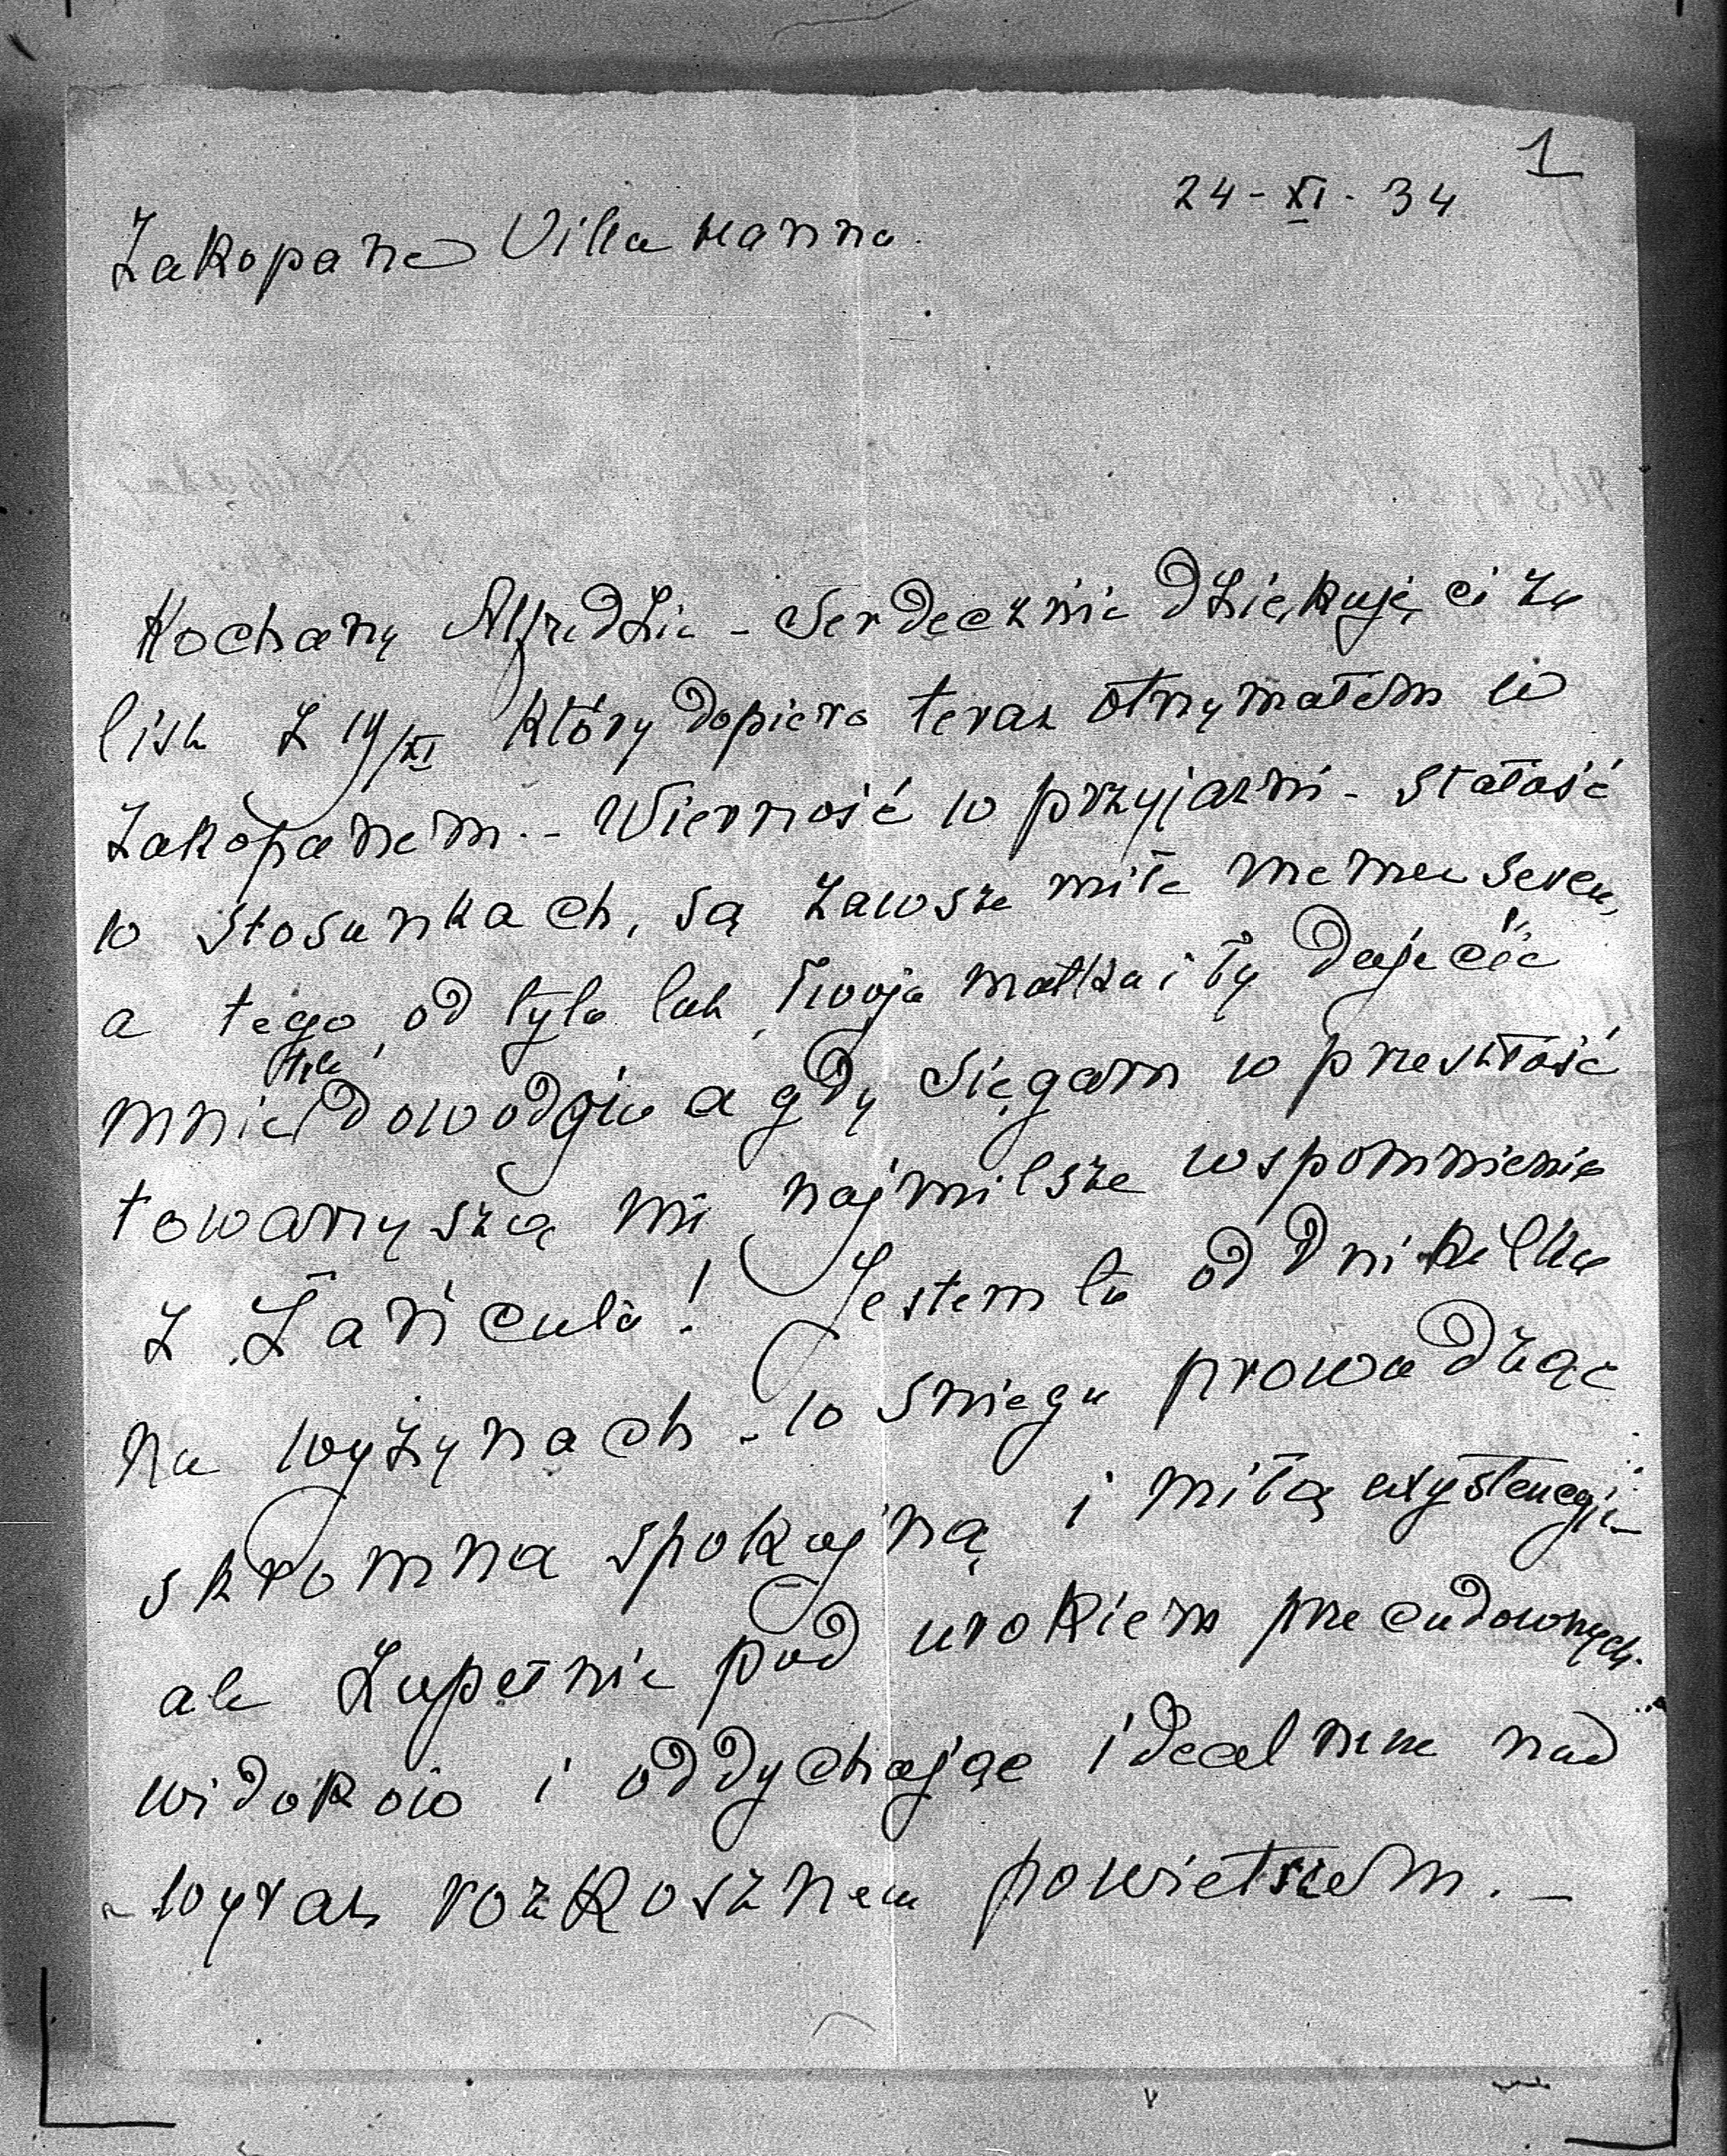 1
24-XI.34
Zakopane Villa Hanna.
Kochany Alfredzie - Serdecznie dziękuję ci za
list z 14/XI który dopiero teraz otrzymałem w
Zakopanem. - Wierność w przyjaźni - stałość
w stosunkach, są zawsze miłe memu sercu,
a tego od tylu lat, Twoja matka i ty dajecie
mnie tyle dowodów a gdy sięgam w przeszłość
towarzyszą mi najmilsze wspomnienia
z Łańcuta! Jestem tu od dni kilku
na wyżynach - w śniegu prowadząc
skromna spokojną i miłą exystencję
ale zupełnie pod urokiem przecudownych
widoków i oddychając idealnem nad
wyraz rozkosznem powietrzem. -